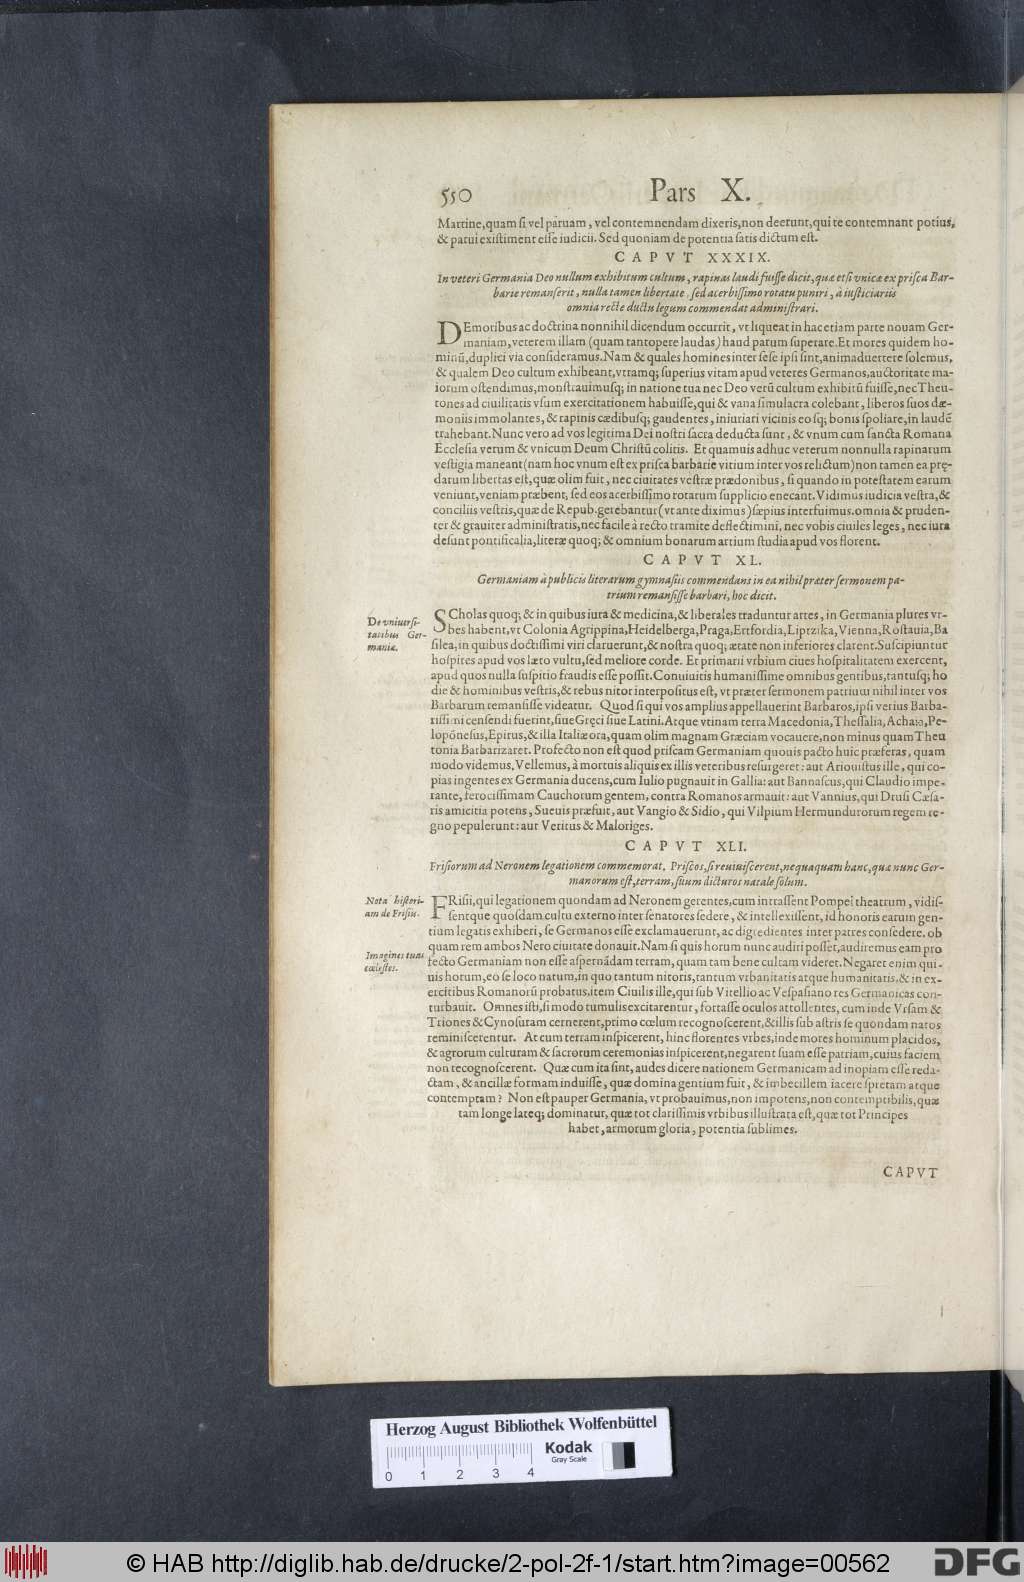 550 Pars X.
Martine,quam si vel paruam, vel contemnendam dixeris,non deerunt,qui te contemnant potius,
& parui existiment esse iudicii. Sed quoniam de potentia satis dictum est.
CAPVT XXXIX.
In veteri Germania Deo nullum exhibitum cultum, rapinas laudi fuisse dicit,quæ etsi vnicæ ex prisca Bar-
barie remanserit, nulla tamen libertate, sed acerbissimo rotatu puniri, à iusticiariis
omnia recte ductu legum commendat administrari.
DEmoribus ac doctrina nonnihil dicendum occurrit, vt liqueat in hac etiam parte nouam Ger-
maniam,veterem illam (quam tantopere laudas) haud parum superare. Et mores quidem ho-
minũ,duplici via consideramus.Nam & quales homines inter sese ipsi sint,animaduertere solemus,
& qualem Deo cultum exhibeant,vtramq; superius vitam apud veteres Germanos,auctoritate ma-
iorum ostendimus,monstrauimusq; in natione tua nec Deo verũ cultum exhibitũ fuisse,nec Theu-
tones ad ciuilitatis vsum exercitationem habuisse,qui & vana simulacra colebant, liberos suos dæ-
moniis immolantes, & rapinis cædibusq; gaudentes, iniuriari vicinis eosq; bonis spoliare,in laudẽ
trahebant.Nunc vero ad vos legitima Dei nostri sacra deducta sunt, & vnum cum sancta Romana
Ecclesia verum & vnicum Deum Christũ colitis. Et quamuis adhuc veterum nonnulla rapinarum
vestigia maneant(nam hoc vnum est ex prisca barbarie vitium inter vos relictum)non tamen ea pre̜-
darum libertas est,quæ olim fuit, nec ciuitates vestræ prædonibus, si quando in potestatem earum
veniunt,veniam præbent, sed eos acerbissimo rotarum supplicio enecant. Vidimus iudicia vestra,&
conciliis vestris,quæ de Repub.gerebantur(vt ante diximus)sæpius interfuimus.omnia & pruden-
ter & grauiter administratis,nec facile à recto tramite deflectimini, nec vobis ciuiles leges, nec iura
desunt pontificalia,literæ quoq; & omnium bonarum artium studia apud vos florent.
CAPVT XL.
Germaniam à publicis literarum gymnasiis commendans in ea nihil præter sermonem pa-
trium remansisse barbari, hoc dicit.
De vniuersi-
tatibus Ger-
maniæ.
SCholas quoq; & in quibus iura & medicina,& liberales traduntur artes, in Germania plures vr-
bes habent,vt Colonia Agrippina,Heidelberga,Praga,Erffordia,Liptzika,Vienna,Rostauia,Ba
silea,in quibus doctissimi viri claruerunt,& nostra quoq; ætate non inferiores clarent.Suscipiuntur
hospites apud vos læto vultu,sed meliore corde. Et primarii vrbium ciues hospitalitatem exercent,
apud quos nulla suspitio fraudis esse possit.Conuiuitis humanissime omnibus gentibus,tantusq; ho
die & hominibus vestris,& rebus nitor interpositus est, vt præter sermonem patrium nihil inter vos
Barbarum remansisse videatur. Quod si qui vos amplius appellauerint Barbaros,ipsi verius Barba-
rissimi censendi fuerint,siue Gre̜ci siue Latini.Atque vtinam terra Macedonia,Thessalia,Achaia,Pe-
loponesus,Epirus,& illa Italiæ ora,quam olim magnam Græciam vocauere,non minus quam Theu
tonia Barbarizaret. Profecto non est quod priscam Germaniam quouis pacto huic præferas, quam
modo videmus.Vellemus, à mortuis aliquis ex illis veteribus resurgeret: aut Ariouistus ille, qui co-
pias ingentes ex Germania ducens,cum Iulio pugnauit in Gallia: aut Bannascus,qui Claudio impe-
rante, ferocissimam Cauchorum gentem, contra Romanos armauit: aut Vannius,qui Drusi Cæsa-
ris amicitia potens, Sueuis præfuit, aut Vangio & Sidio, qui Vilpium Hermundurorum regem re-
gno pepulerunt: aut Veritus & Maloriges.
CAPVT XLI.
Frisiorum ad Neronem legationem commemorat. Priscos,si reuiuiscerent,nequaquam hanc,quæ nunc Ger-
manorum est,terram, suum dicturos natale solum.
Nota histori-
am de Frisiis.
FRisii,qui legationem quondam ad Neronem gerentes,cum intrassent Pompei theatrum, vidis-
sentque quosdam cultu externo inter senatores sedere, & intellexissent, id honoris earum gen-
tium legatis exhiberi, se Germanos esse exclamauerunt, ac digredientes inter patres consedere. ob
quam rem ambos Nero ciuitate donauit.Nam si quis horum nunc audiri posset,audiremus eam pro
Imagines tuas
cœlestes.
fecto Germaniam non esse aspernãdam terram, quam tam bene cultam videret. Negaret enim qui-
uis horum,eo se loco natum,in quo tantum nitoris,tantum vrbanitatis atque humanitatis.& in ex-
ercitibus Romanorũ probatus.item Ciuilis ille,qui sub Vitellio ac Vespasiano res Germanicas con-
turbauit. Omnes isti,si modo tumulis excitarentur, fortasse oculos attollentes, cum inde Vrsam &
Triones & Cynosuram cernerent,primo cœlum recognoscerent,& illis sub astris se quondam natos
reminiscerentur. At cum terram inspicerent, hinc florentes vrbes,inde mores hominum placidos,
& agrorum culturam & sacrorum ceremonias inspicerent,negarent suam esse patriam,cuius faciem
non recognoscerent. Quæ cum ita sint, audes dicere nationem Germanicam ad inopiam esse reda-
ctam, & ancillæ formam induisse, quæ domina gentium fuit, & imbecillem iacere spretam atque
contemptam? Non est pauper Germania, vt probauimus,non impotens,non contemptibilis,quæ
tam longe lateq; dominatur, quæ tot clarissimis vrbibus illustrata est,quæ tot Principes
habet, armorum gloria, potentia sublimes.
CAPVT
Herzog August Bibliothek Wolfenbüttel
Kodak
Gray Scale
0 1 2 3 4
© HAB http://diglib.hab.de/drucke/2-pol-2f-1/start.htm?image=00562
DFG